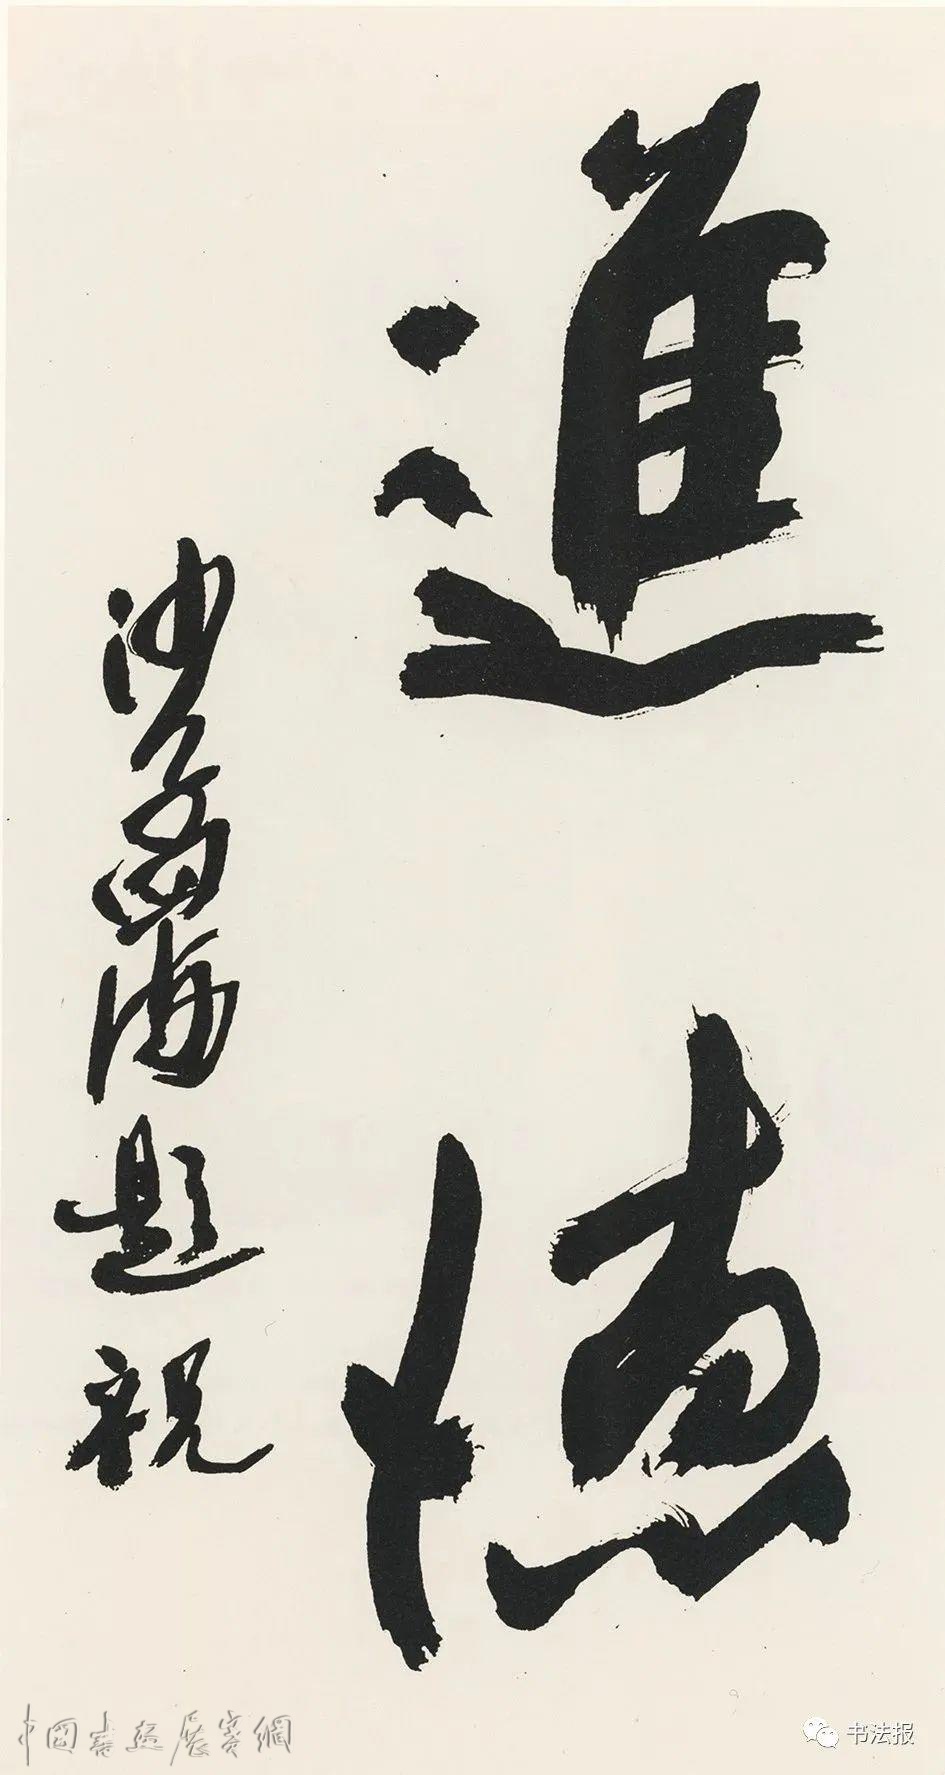 進德
沙孟海題祝
中國書畫展賽網
书法报